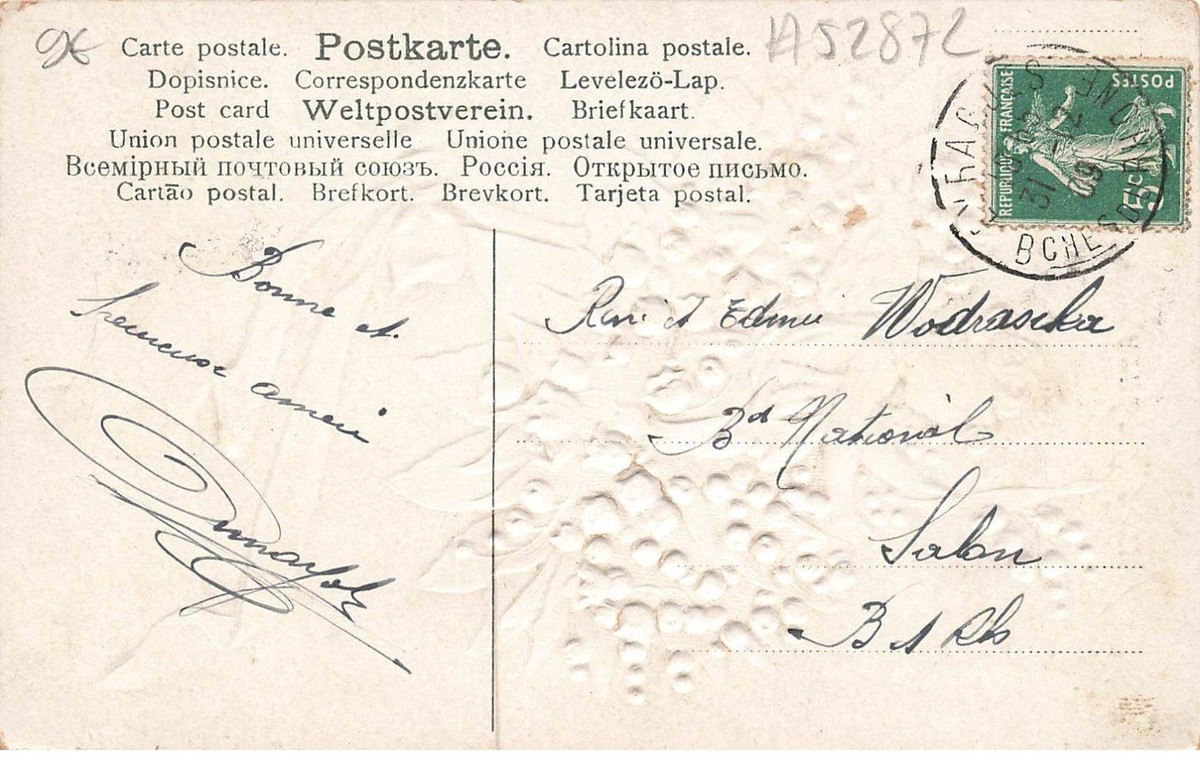 9€ Carte postale. Postkarte. Cartolina postale. A52872
Dopisnice. Correspondenzkarte Levelező-Lap.
Post card Weltpostverein. Briefkaart.
Union postale universelle Unione postale universale.
Всемірный почтовый союзъ. Россія. Открытое письмо.
Cartão postal. Brefkort. Brevkort. Tarjeta postal.
POSTES
REPUBLIQUE FRANÇAISE
5c
31
09
BCHES D
Bonne et.
heureuse année
René et Edmée Wodraseka
Bd National
Salon
B d Rh